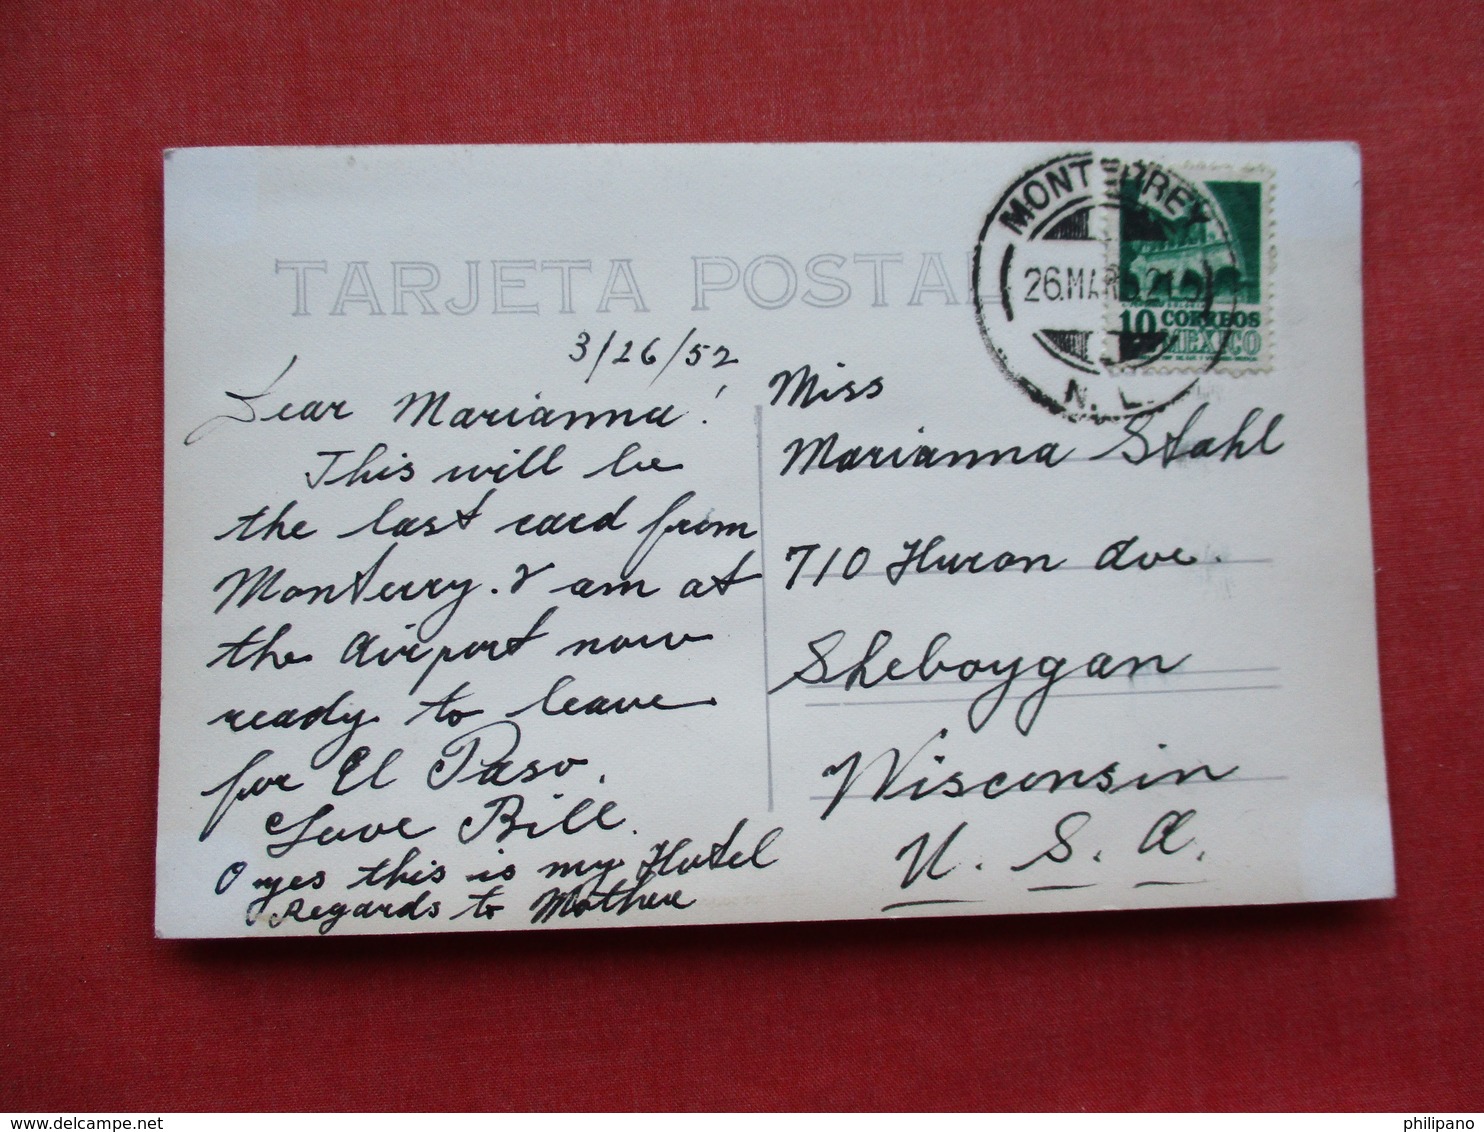 TARJETA POSTAL
MONTERREY
26.MAR
N. L.
10 CORREOS
MEXICO
3/26/52
Dear Marianna!
This will be
the last card from
Monterry. I am at
the airport now
ready to leave
for El Paso.
Love Bill.
O yes this is my Hotel
Regards to Mother
Miss
Marianna Stahl
710 Huron Ave.
Sheboygan
Wisconsin
U. S. A.
www.delcampe.net
philipano